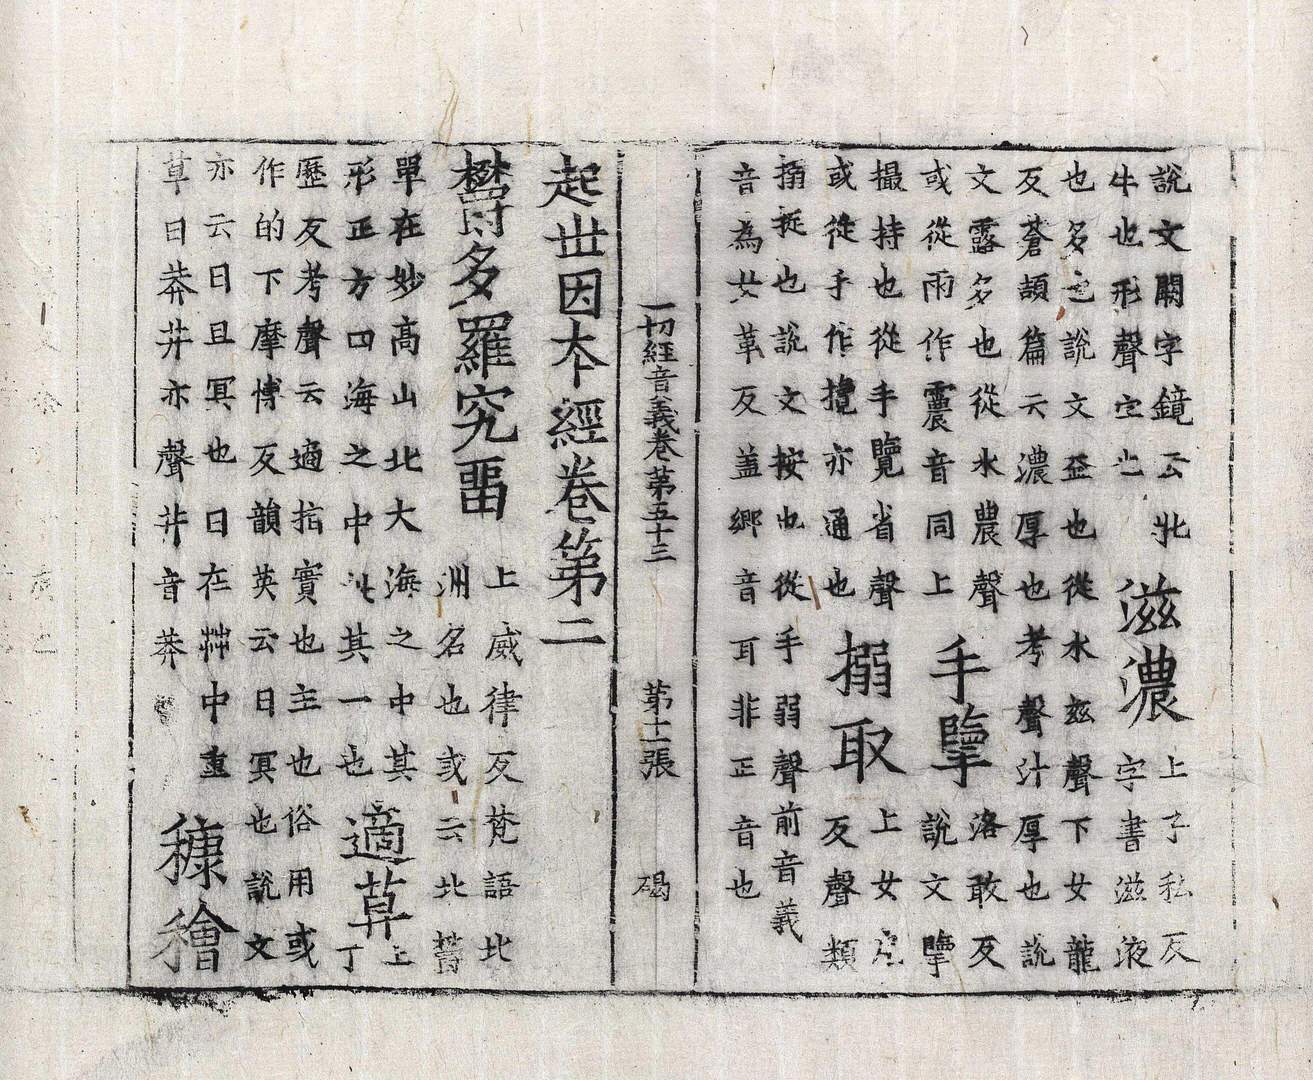 說文闕字鏡云牝
牛也形聲字也
滋濃
上子私反
字書滋液
也多也說文益也從水玆聲下女龍
反蒼頡篇云濃厚也考聲汁厚也說
文露多也從水農聲
或從雨作震音同上
手擥
洛敢反
說文擥
撮持也從手覽省聲
或從手作攬亦通也
搦取
上女
反聲類
搦捉也說文按也從手弱聲前音義
音為女革反蓋鄉音耳非正音也
一切經音義卷第五十三 第十一張 碣
起世因本經卷第二
欝多羅究畱
上威律反梵語北
洲名也或云北欝
單在妙高山北大海之中其
形正方四海之中此其一也
適莫
上
丁
歷反考聲云適指實也主也俗用或
作的下摩博反韻英云日冥也說文
亦云日且冥也日在茻中重
草曰莽茻亦聲茻音莽
穅糩